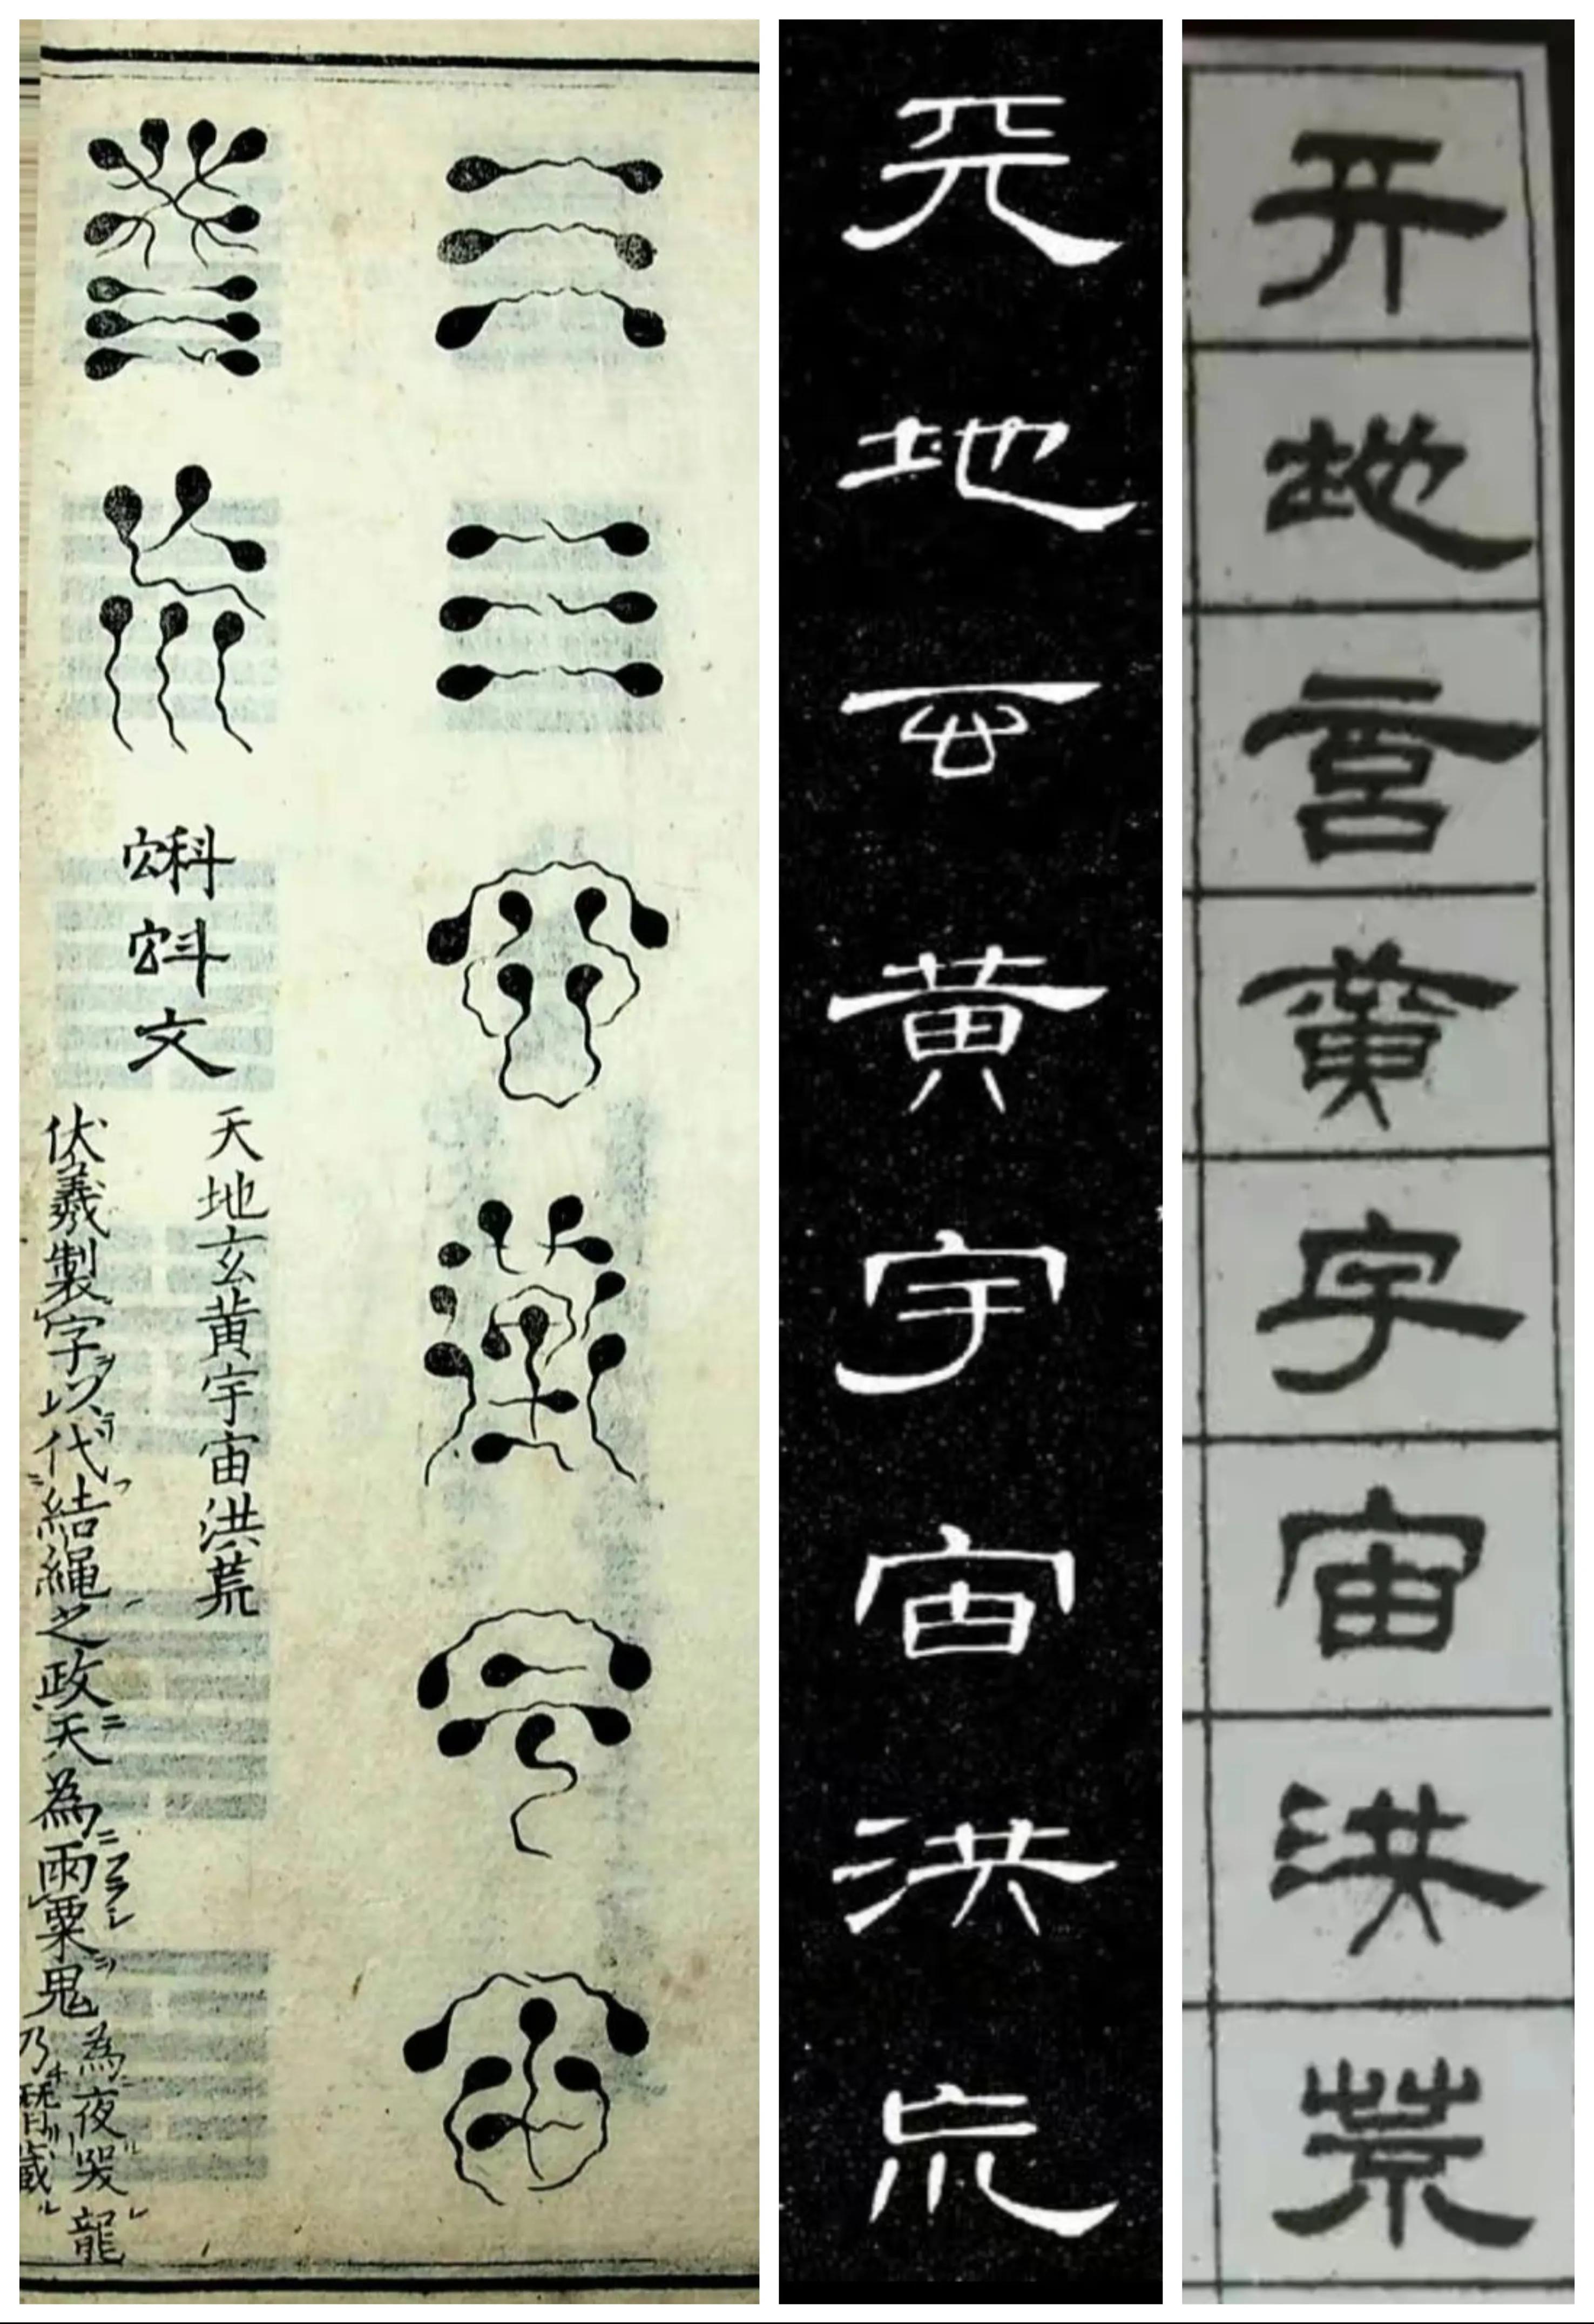 蝌蚪文
天地玄黄宇宙洪荒
伏羲製字以代結繩之政天為雨粟鬼為夜哭龍乃潛藏
天地玄黄宇宙洪巟
天地玄黃宇宙洪荒